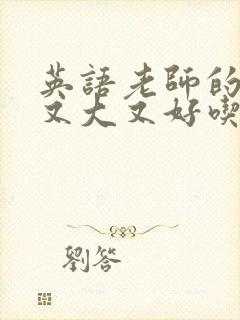 英語老師的
又大又好喫
劉答